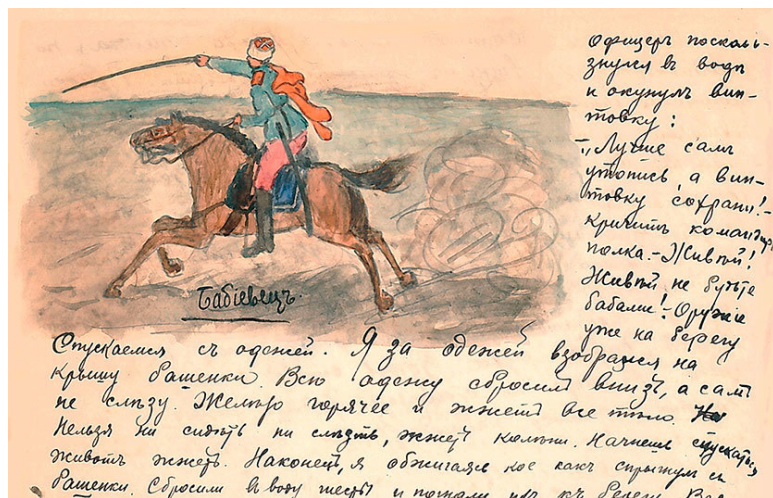 Офицеръ поскаль-
знулся въ воду
и окунулъ вин-
товку:
"Лучше самъ
утопись, а вин-
товку сохрани!-
кричитъ командиръ
полка.-Живѣй!
Живѣй не будьте
бабами!-Оружіе
уже на берегу
Бабіевецъ.
Спускаемся съ одежей. Я за одежей взобрался на
крышу башенки. Всю одежу сбросилъ внизъ, а самъ
не слѣзу. Желѣзо горячее и жжетъ все тѣло.
Нельзя ни сидѣть ни слѣзть, жжетъ колѣни. Начнешь спускаться
животъ жжетъ. Наконецъ, я обжигаясь кое какъ спрыгнулъ съ
башенки. Сбросили въ воду шесты и къ берегу.